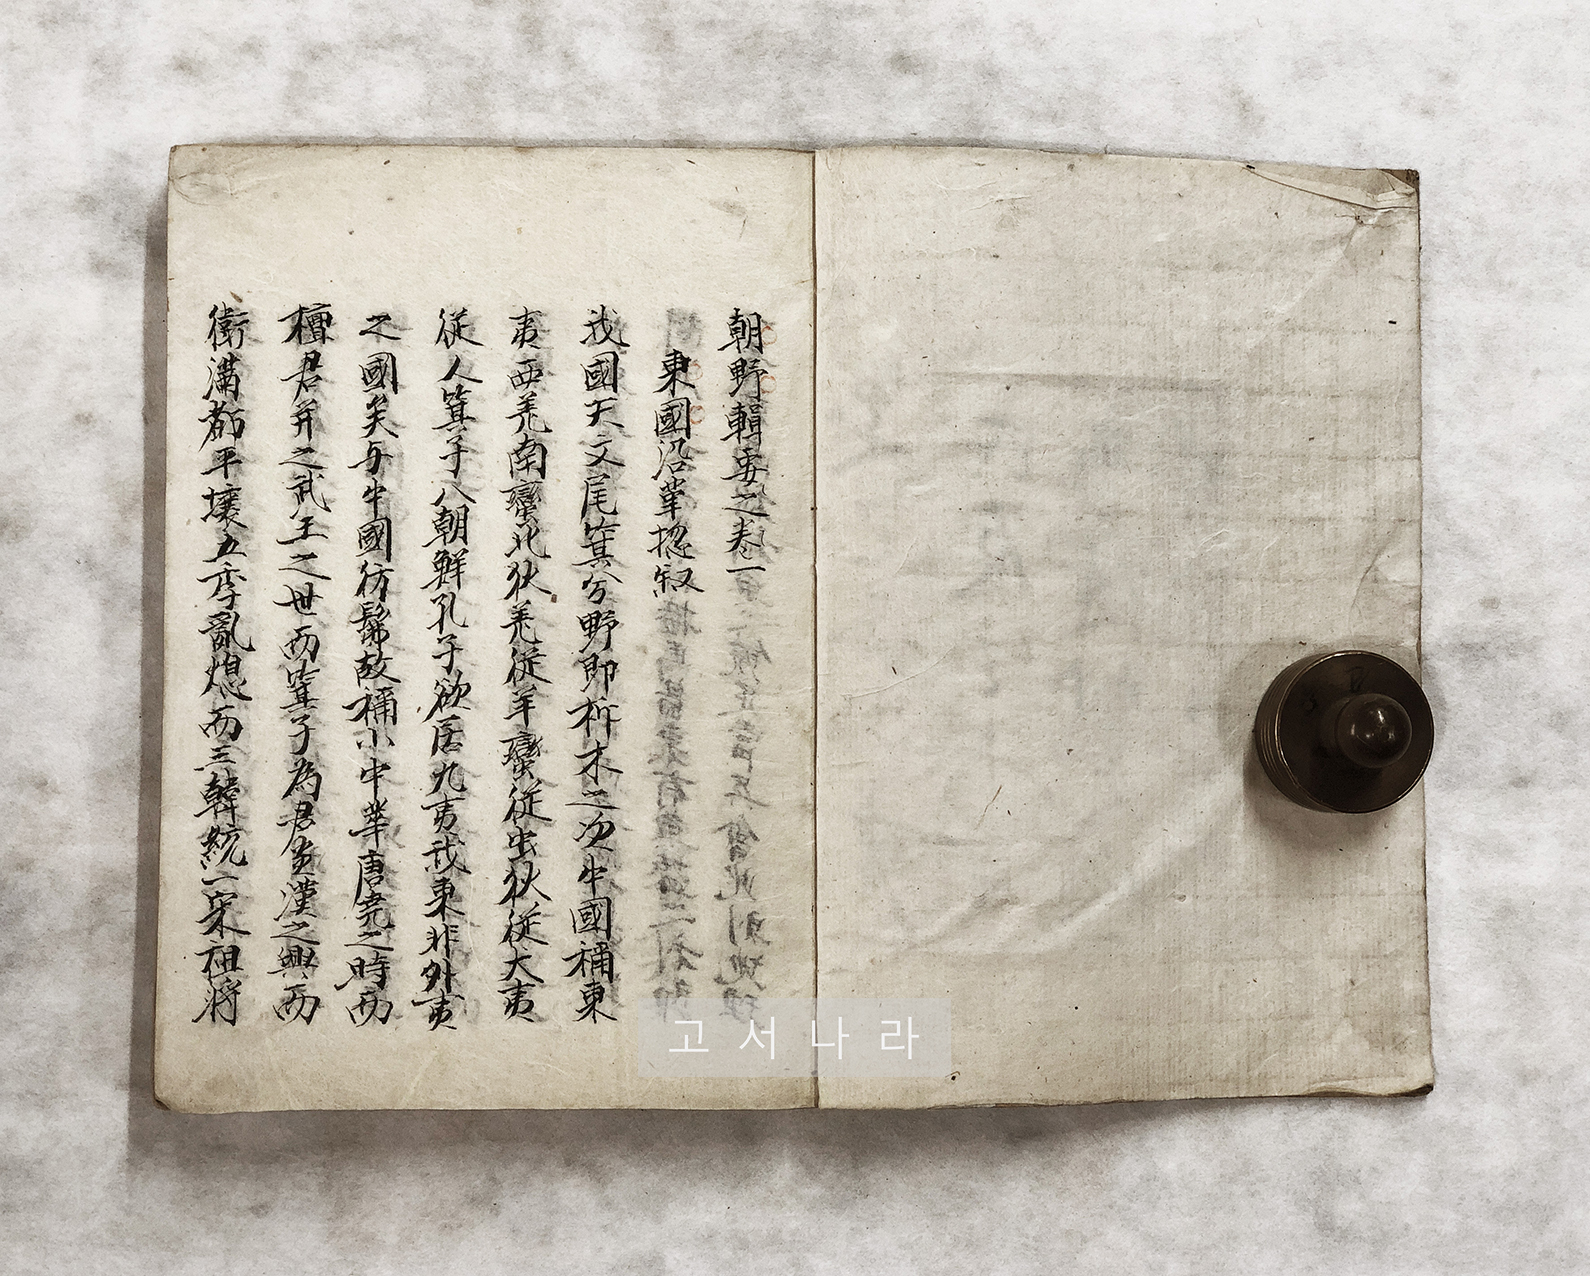 朝野輯要之卷一
東國沿革揔叙
我國天文尾箕分野即析木之次中國稱東
夷西羌南蠻北狄羌從羊蠻從虫狄從犬夷
從人箕子入朝鮮孔子欲居九夷我東非外夷
之國矣与中國彷髴故稱小中華唐堯之時而
檀君并之武王之世而箕子為君焉漢之興而
衛滿都平壤五季亂熄而三韓統一宋祖將
고서나라